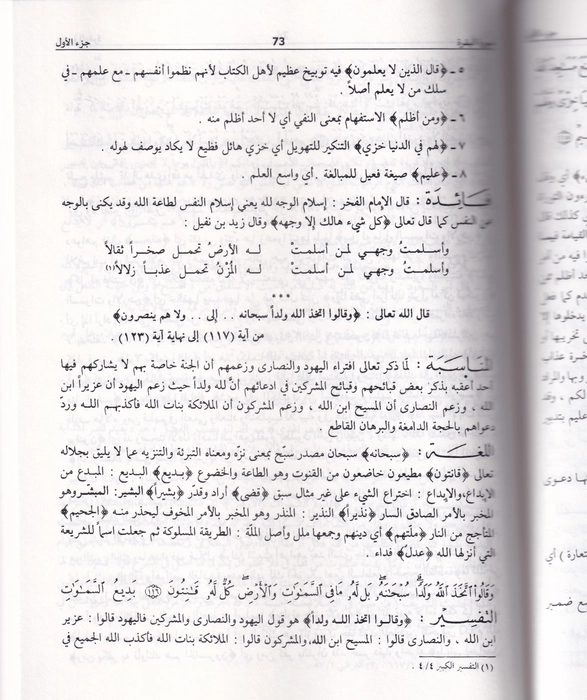 جزء الأول
73
سورة البقرة
٥ - ﴿قال الذين لا يعلمون﴾ فيه توبيخ عظيم لأهل الكتاب لأنهم نظموا أنفسهم - مع علمهم - في
سلك من لا يعلم أصلاً .
٦ - ﴿ومن أظلم﴾ الاستفهام بمعنى النفي أي لا أحد أظلم منه .
٧ - ﴿لهم في الدنيا خزي﴾ التنكير للتهويل أي خزي هائل فظيع لا يكاد يوصف لهوله .
٨ - ﴿عليم﴾ صيغة فعيل للمبالغة . أي واسع العلم .
فَـائِـدَة : قال الإمام الفخر : إسلام الوجه لله يعني إسلام النفس لطاعة الله وقد يكنى بالوجه
عن النفس كما قال تعالى ﴿كل شيء هالك إلا وجهه﴾ وقال زيد بن نفيل :
وأسلمتُ وجهي لمن أسلمتْ لـه الأرضُ تحمل صخراً ثقالاً
وأسلمتُ وجهي لمن أسلمتْ لـه المُزْنُ تحمل عذباً زلالاً(١)
* * *
قال الله تعالى : ﴿وقالوا اتخذ الله ولداً سبحانه . . إلى . . ولا هم ينصرون﴾
من آية (١١٧) إلى نهاية آية (١٢٣) .
المنَـاسَبَة : لمّا ذكر تعالى افتراء اليهود والنصارى وزعمهم أن الجنة خاصة بهم لا يشاركهم فيها
أحد أعقبه بذكر بعض قبائحهم وقبائح المشركين في ادعائهم أنَّ لله ولداً حيث زعم اليهود أن عزيراً ابن
الله ، وزعم النصارى أن المسيح ابن الله ، وزعم المشركون أن الملائكة بنات الله فأكذبهم اللـه وردّ
دعواهم بالحجة الدامغة والبرهان القاطع .
اللغَــة : ﴿سبحانه﴾ سبحان مصدر سبّح بمعنى نزّه ومعناه التبرئة والتنزيه عما لا يليق بجلاله
تعالى ﴿قانتون﴾ مطيعون خاضعون من القنوت وهو الطاعة والخضوع ﴿بديع﴾ البديع : المبدع من
الإبداع،والإبداع : اختراع الشيء على غير مثال سبق ﴿قضى﴾ أراد وقدّر ﴿بشيراً﴾ البشير: المبشر وهو
المخبر بالأمر الصادق السار ﴿نذيراً﴾ النذير : المنذر وهو المخبر بالأمر المخوف ليحذر منه ﴿الجحيم﴾
المتأجج من النار ﴿ملّتهم﴾ أي دينهم وجمعها ملل وأصل الملّة : الطريقة المسلوكة ثم جعلت اسماً للشريعة
التي أنزلها الله ﴿عدل﴾ فداء .
وَقَالُوا۟ ٱتَّخَذَ ٱللَّهُ وَلَدًا سُبْحَـٰنَهُۥ بَل لَّهُۥ مَا فِى ٱلسَّمَـٰوَٰتِ وَٱلْأَرْضِ كُلٌّ لَّهُۥ قَـٰنِتُونَ ﴿١١٦﴾ بَدِيعُ ٱلسَّمَـٰوَٰتِ
التَفسِـيْر : ﴿وقالوا اتخذ الله ولداً﴾ هو قول اليهود والنصارى والمشركين فاليهود قالوا : عزير
ابن الله ، والنصارى قالوا : المسيح ابن الله،والمشركون قالوا : الملائكة بنات الله فأكذب الله الجميع في
(١) التفسير الكبير ٤/٤ .